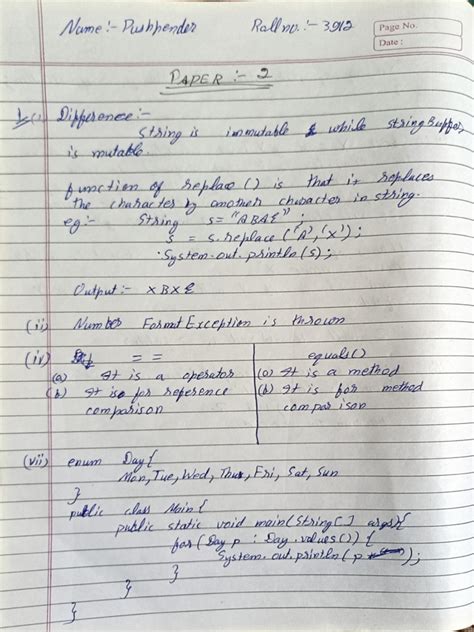 Name :- Pushpender Roll no. :- 3912
Page No.
Date :
PAPER :- 2
1. (i) Difference :-
String is immutable while stringBuffer,
is mutable.
function of replace () is that it replaces
the character by another character in string.
eg :- String s = "ABAE" ;
s = s.replace ('A', 'X') ;
System.out.println (s) ;
Output :- XBXE
(ii) Number Format Exception is thrown
(iv) == equals ()
(a) It is a operator (a) It is a method
(b) It is for reference (b) It is for method
comparison comparison
(vii) enum Day {
Mon, Tue, Wed, Thu, Fri, Sat, Sun
}
public class Main {
public static void main (String [ ] args) {
for (Day p : Day.values ()) {
System.out.println (p );
}
}
}